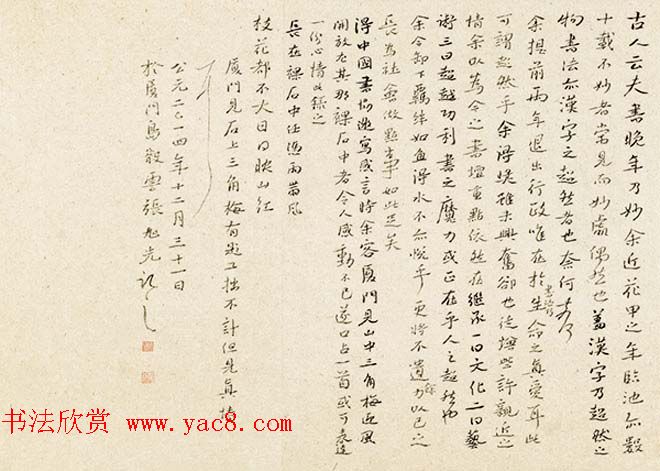 古人云夫書晚年乃妙余近花甲之年臨池亦數
十載不妙者常見而妙處偶然也蓋漢字乃超然之
物書法亦漢字之超然者也奈何
余提前兩年退出行政唯在於生命之真愛耳此
可謂超然乎余得雖未興奮卻也徒增些許親近之
情余以為今之書壇重點依然在繼承一曰文化二曰藝
術三曰超越功利書之魔力或正在乎人之超然也
余今卸下羈絆如魚得水不亦悅乎更將不遺餘力以己之
長為社會做點事如此足矣
得中國書協邀寫感言時余客廈門見山中三角梅迎風
開放尤其那裸石中者令人感動不已遂口占一首或可表達
一份心情也錄之
長在裸石中任憑雨帶風
枝花都不大日日映山紅
廈門見石上三角梅有題工拙不計但見真情
公元二〇一四年十二月三十一日
於廈門張旭光記之
书法欣赏 www.yac8.com